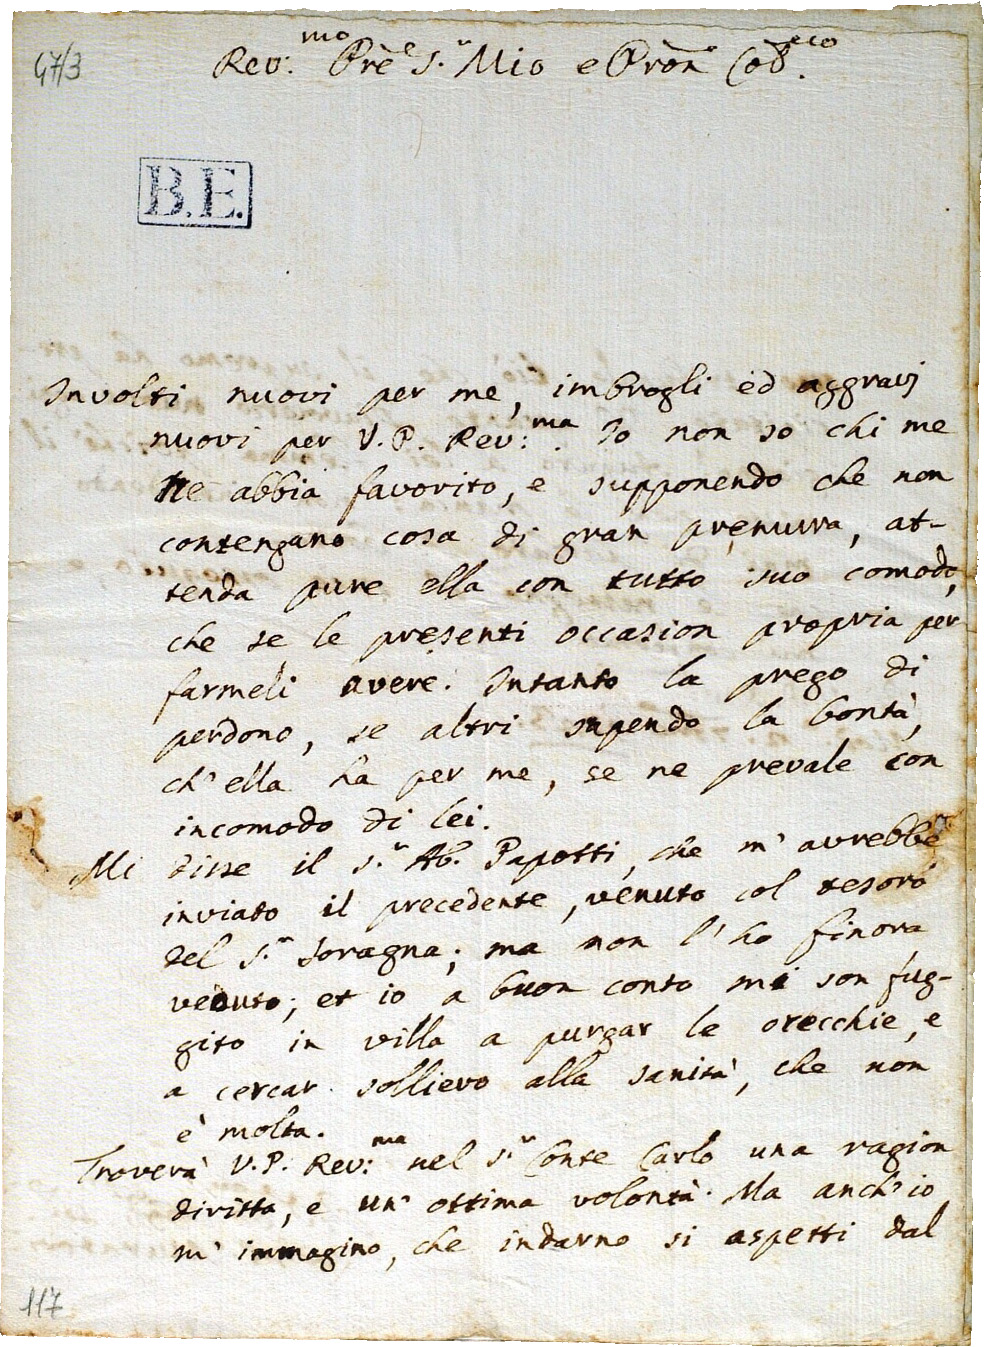 47/3
Rev:mo Pre Sr Mio e Pron Coleco.
B.E.
Involti nuovi per me, imbrogli ed aggravj
nuovi per V.P. Rev:ma. Io non so chi me
ne abbia favorito, e supponendo che non
contengano cosa di gran premura, at-
tenda pure ella con tutto suo comodo,
che se le presenti occasion propria per
farmeli avere. Intanto la prego di
perdono, se altri sapendo la bontà,
ch'ella ha per me, se ne prevale con
incomodo di lei.
Mi disse il Sr Ab. Papotti, che m'avrebbe
inviato il precedente, venuto col tesoro
del Sr Soragna; ma non l'ho finora
veduto; et io a buon conto mi son fug-
gito in villa a purgar le orecchie, e
a cercar sollievo alla sanità, che non
è molta.
Troverà V.P. Rev:ma nel Sr Conte Carlo una ragion
diritta, e un' ottima volontà. Ma anch'io
m'immagino, che indarno si aspetti dal
117